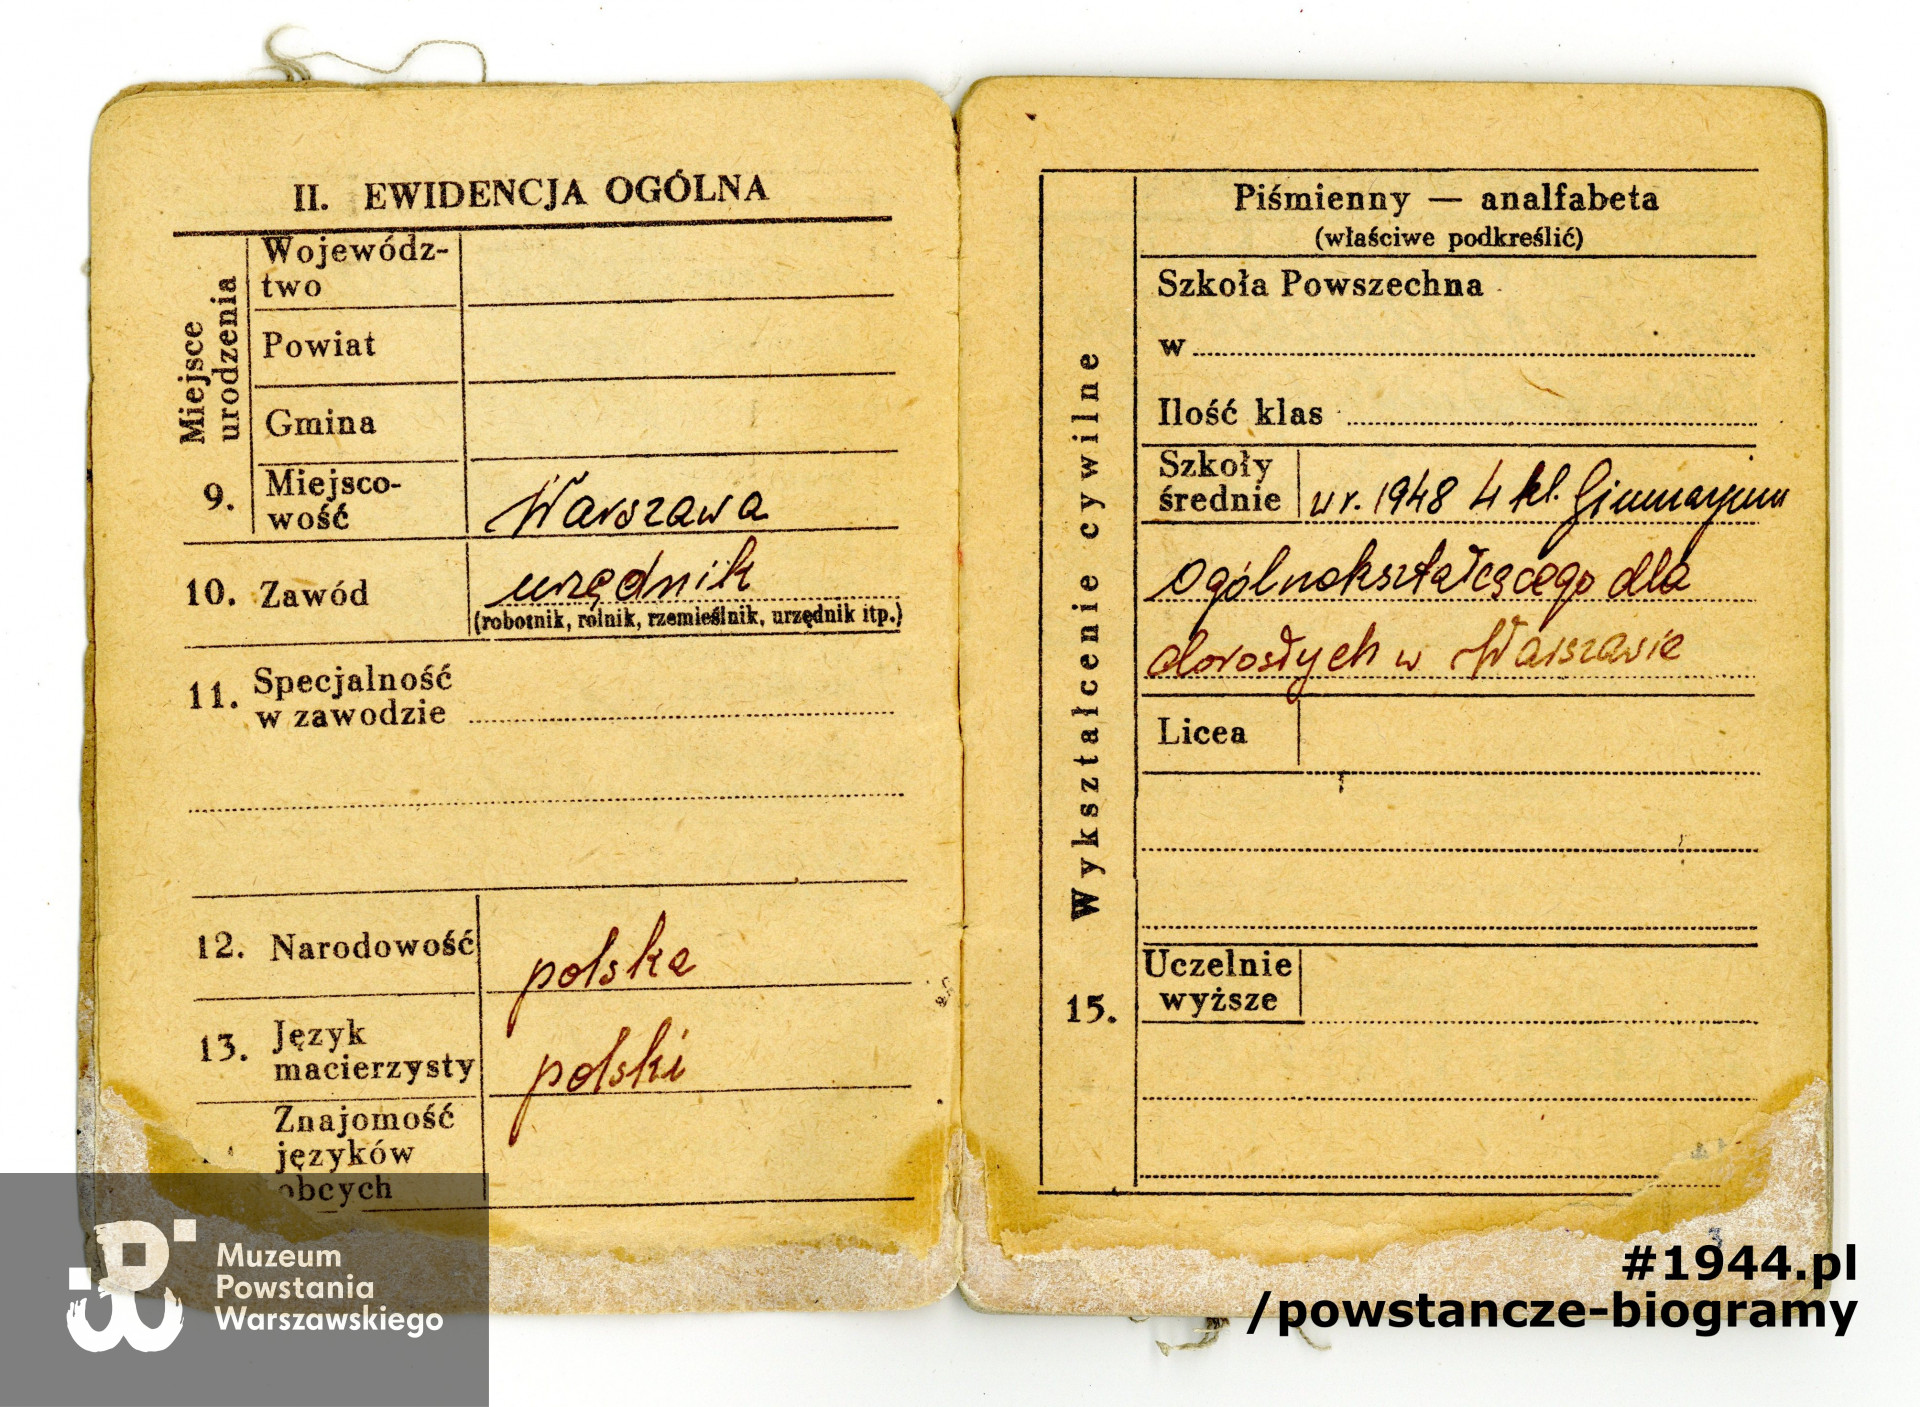 II. EWIDENCJA OGÓLNA
Miejsce
urodzenia
Wojewódz-
two
Powiat
Gmina
9. Miejsco-
wość Warszawa
10. Zawód urzędnik
(robotnik, rolnik, rzemieślnik, urzędnik itp.)
11. Specjalność
w zawodzie
12. Narodowość polska
13. Język
macierzysty polski
Znajomość
języków
obcych
Wykształcenie cywilne
15.
Piśmienny — analfabeta
(właściwe podkreślić)
Szkoła Powszechna
w
Ilość klas
Szkoły
średnie w r. 1948 4 kl. Gimnazjum
ogólnokształcącego dla
dorosłych w Warszawie
Licea
Uczelnie
wyższe
3
Muzeum
Powstania
Warszawskiego
#1944.pl
/powstancze-biogramy